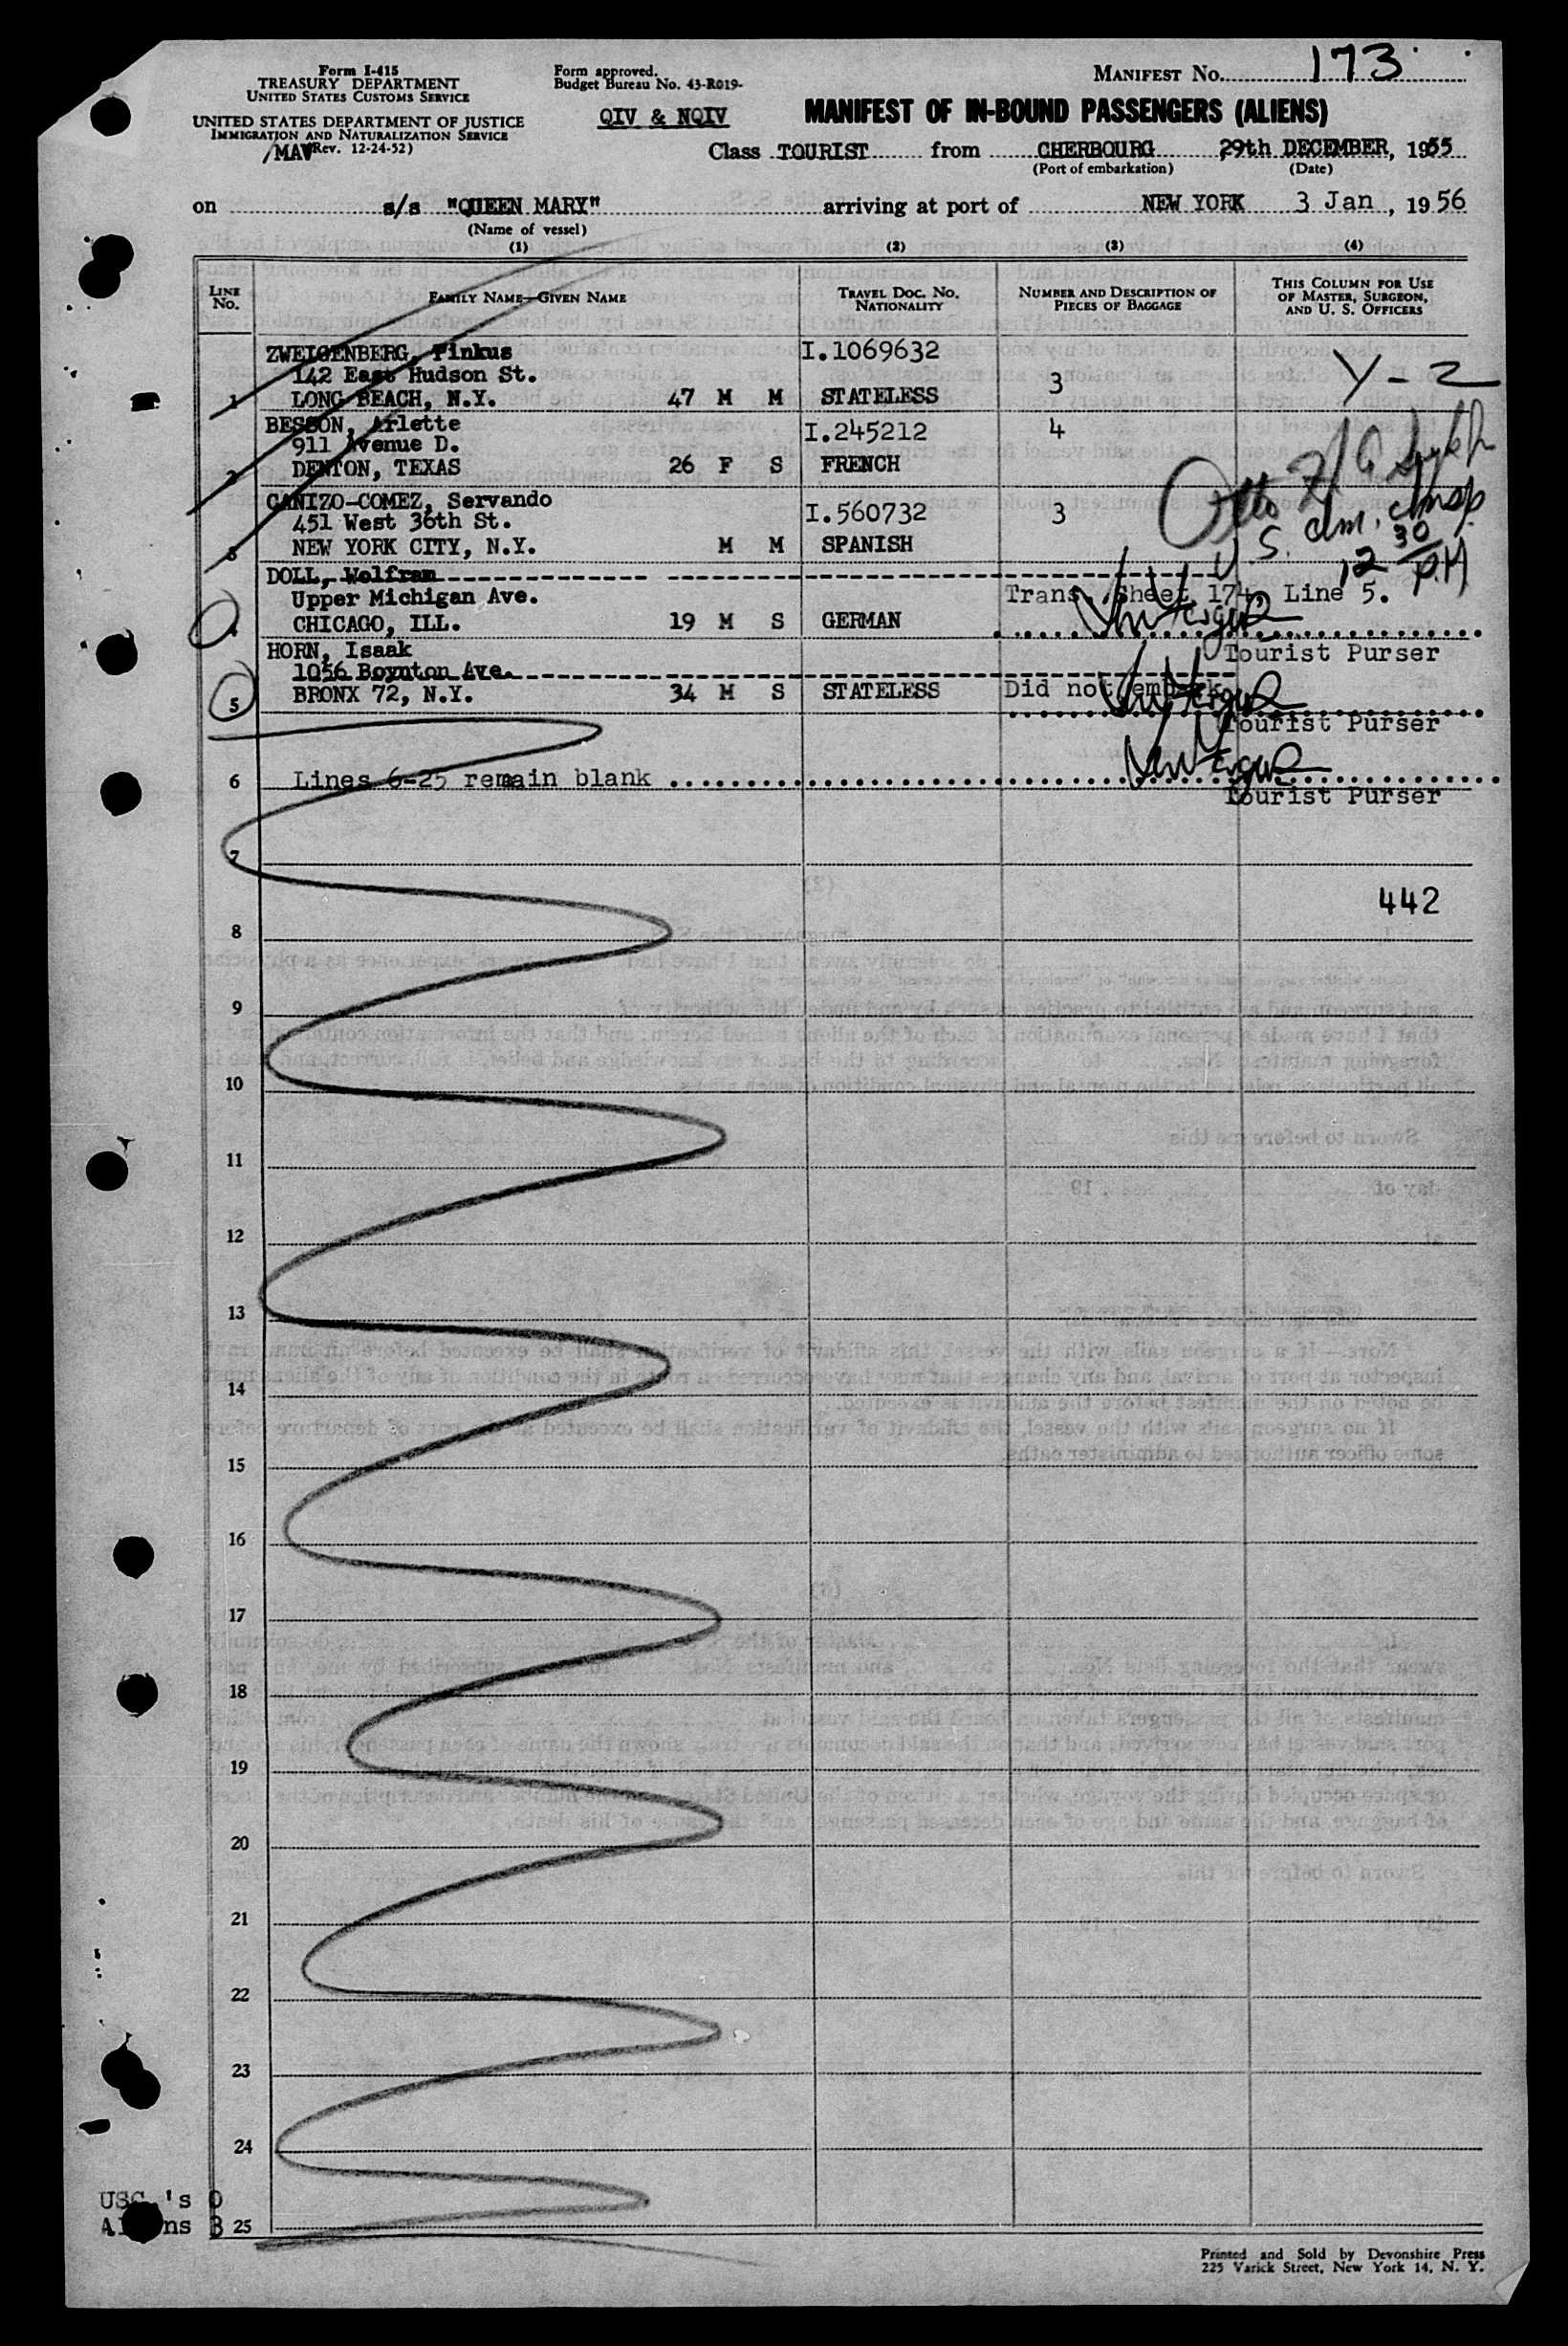 Form I-415
TREASURY DEPARTMENT
UNITED STATES CUSTOMS SERVICE
UNITED STATES DEPARTMENT OF JUSTICE
IMMIGRATION AND NATURALIZATION SERVICE
/MAV (Rev. 12-24-52)
Form approved.
Budget Bureau No. 43-R019-
QIV & NQIV
MANIFEST No. 173
MANIFEST OF IN-BOUND PASSENGERS (ALIENS)
Class TOURIST from CHERBOURG 29th DECEMBER, 1955
(Port of embarkation) (Date)
on s/s "QUEEN MARY" arriving at port of NEW YORK 3 Jan, 1956
(Name of vessel)
(1) (2) (3) (4)
LINE No. FAMILY NAME—GIVEN NAME TRAVEL DOC. NO. NATIONALITY NUMBER AND DESCRIPTION OF PIECES OF BAGGAGE THIS COLUMN FOR USE OF MASTER, SURGEON, AND U. S. OFFICERS
ZWEIGENBERG, Pinkus I.1069632
142 East Hudson St. 3 Y-2
1 LONG BEACH, N.Y. 47 M M STATELESS
BESSON, Arlette I.245212 4
911 Avenue D.
2 DENTON, TEXAS 26 F S FRENCH
Otto
CANIZO-COMEZ, Servando I.560732 3
451 West 36th St. U.S. Im. Insp.
3 NEW YORK CITY, N.Y. M M SPANISH
12 30 P.M
DOLL, Wolfram
Upper Michigan Ave. Trans. Sheet 174, Line 5.
4 CHICAGO, ILL. 19 M S GERMAN
HORN, Isaak Tourist Purser
1056 Boynton Ave.
5 BRONX 72, N.Y. 34 M S STATELESS Did not embark
Tourist Purser
6 Lines 6-25 remain blank
Tourist Purser
7
442
8
9
10
11
12
13
14
15
16
17
18
19
20
21
22
23
24
USC.'s 0
Aliens 3 25
Printed and Sold by Devonshire Press
225 Varick Street, New York 14, N. Y.